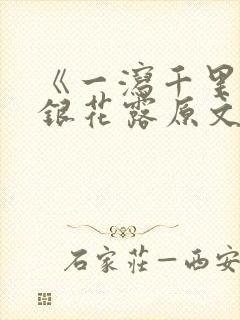 《一瀉千里
銀花露原文
石家莊—西安